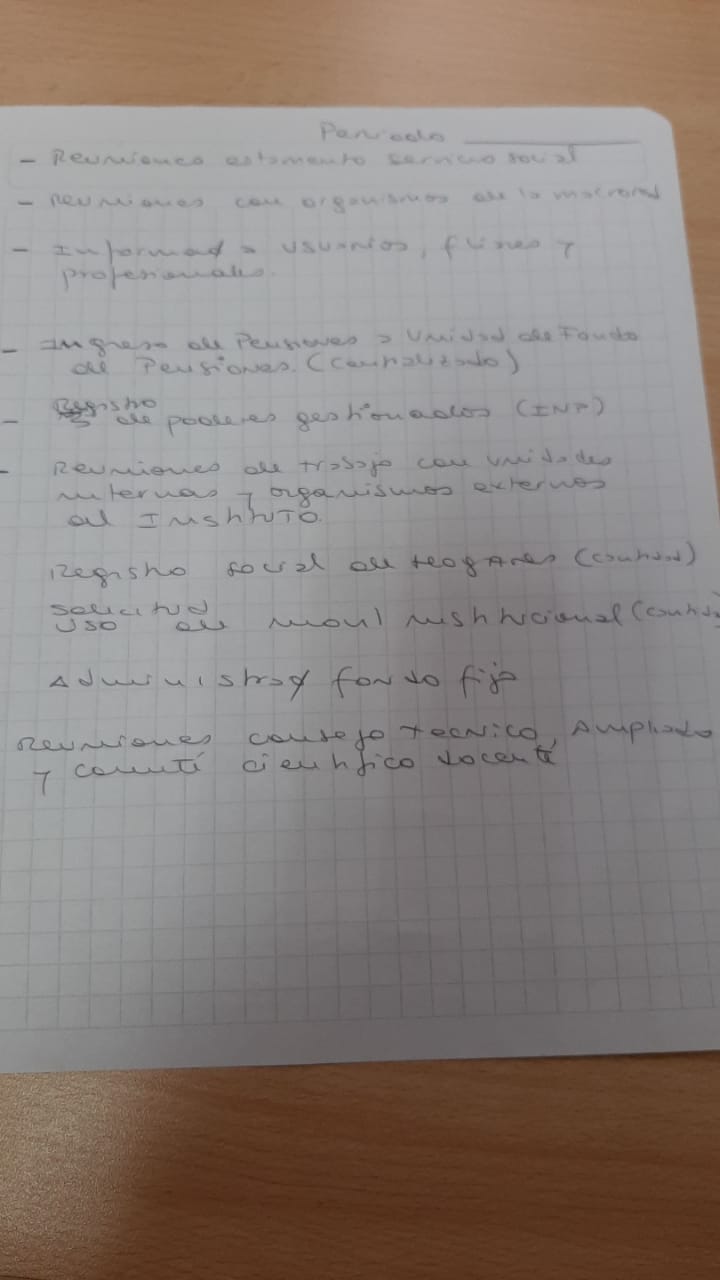 Periodo ___________
- Reuniones estamento servicio social
- Reuniones con organismos de la macrored
- Informad a usuarios, flines y
profesionales.
- Ingreso de Pensiones a Unidad de Fondo
de Pensiones. (Centralizado)
- Registro
de poderes gestionados (INP)
- Reuniones de trabajo con unidades
internas y organismos externos
al Instituto.
Registro social de Hogares (cantidad)
solicitud
uso de movil institucional (cantid
Administrad fondo fijo
Reuniones consejo tecnico, Ampliado
y comité cientifico docente